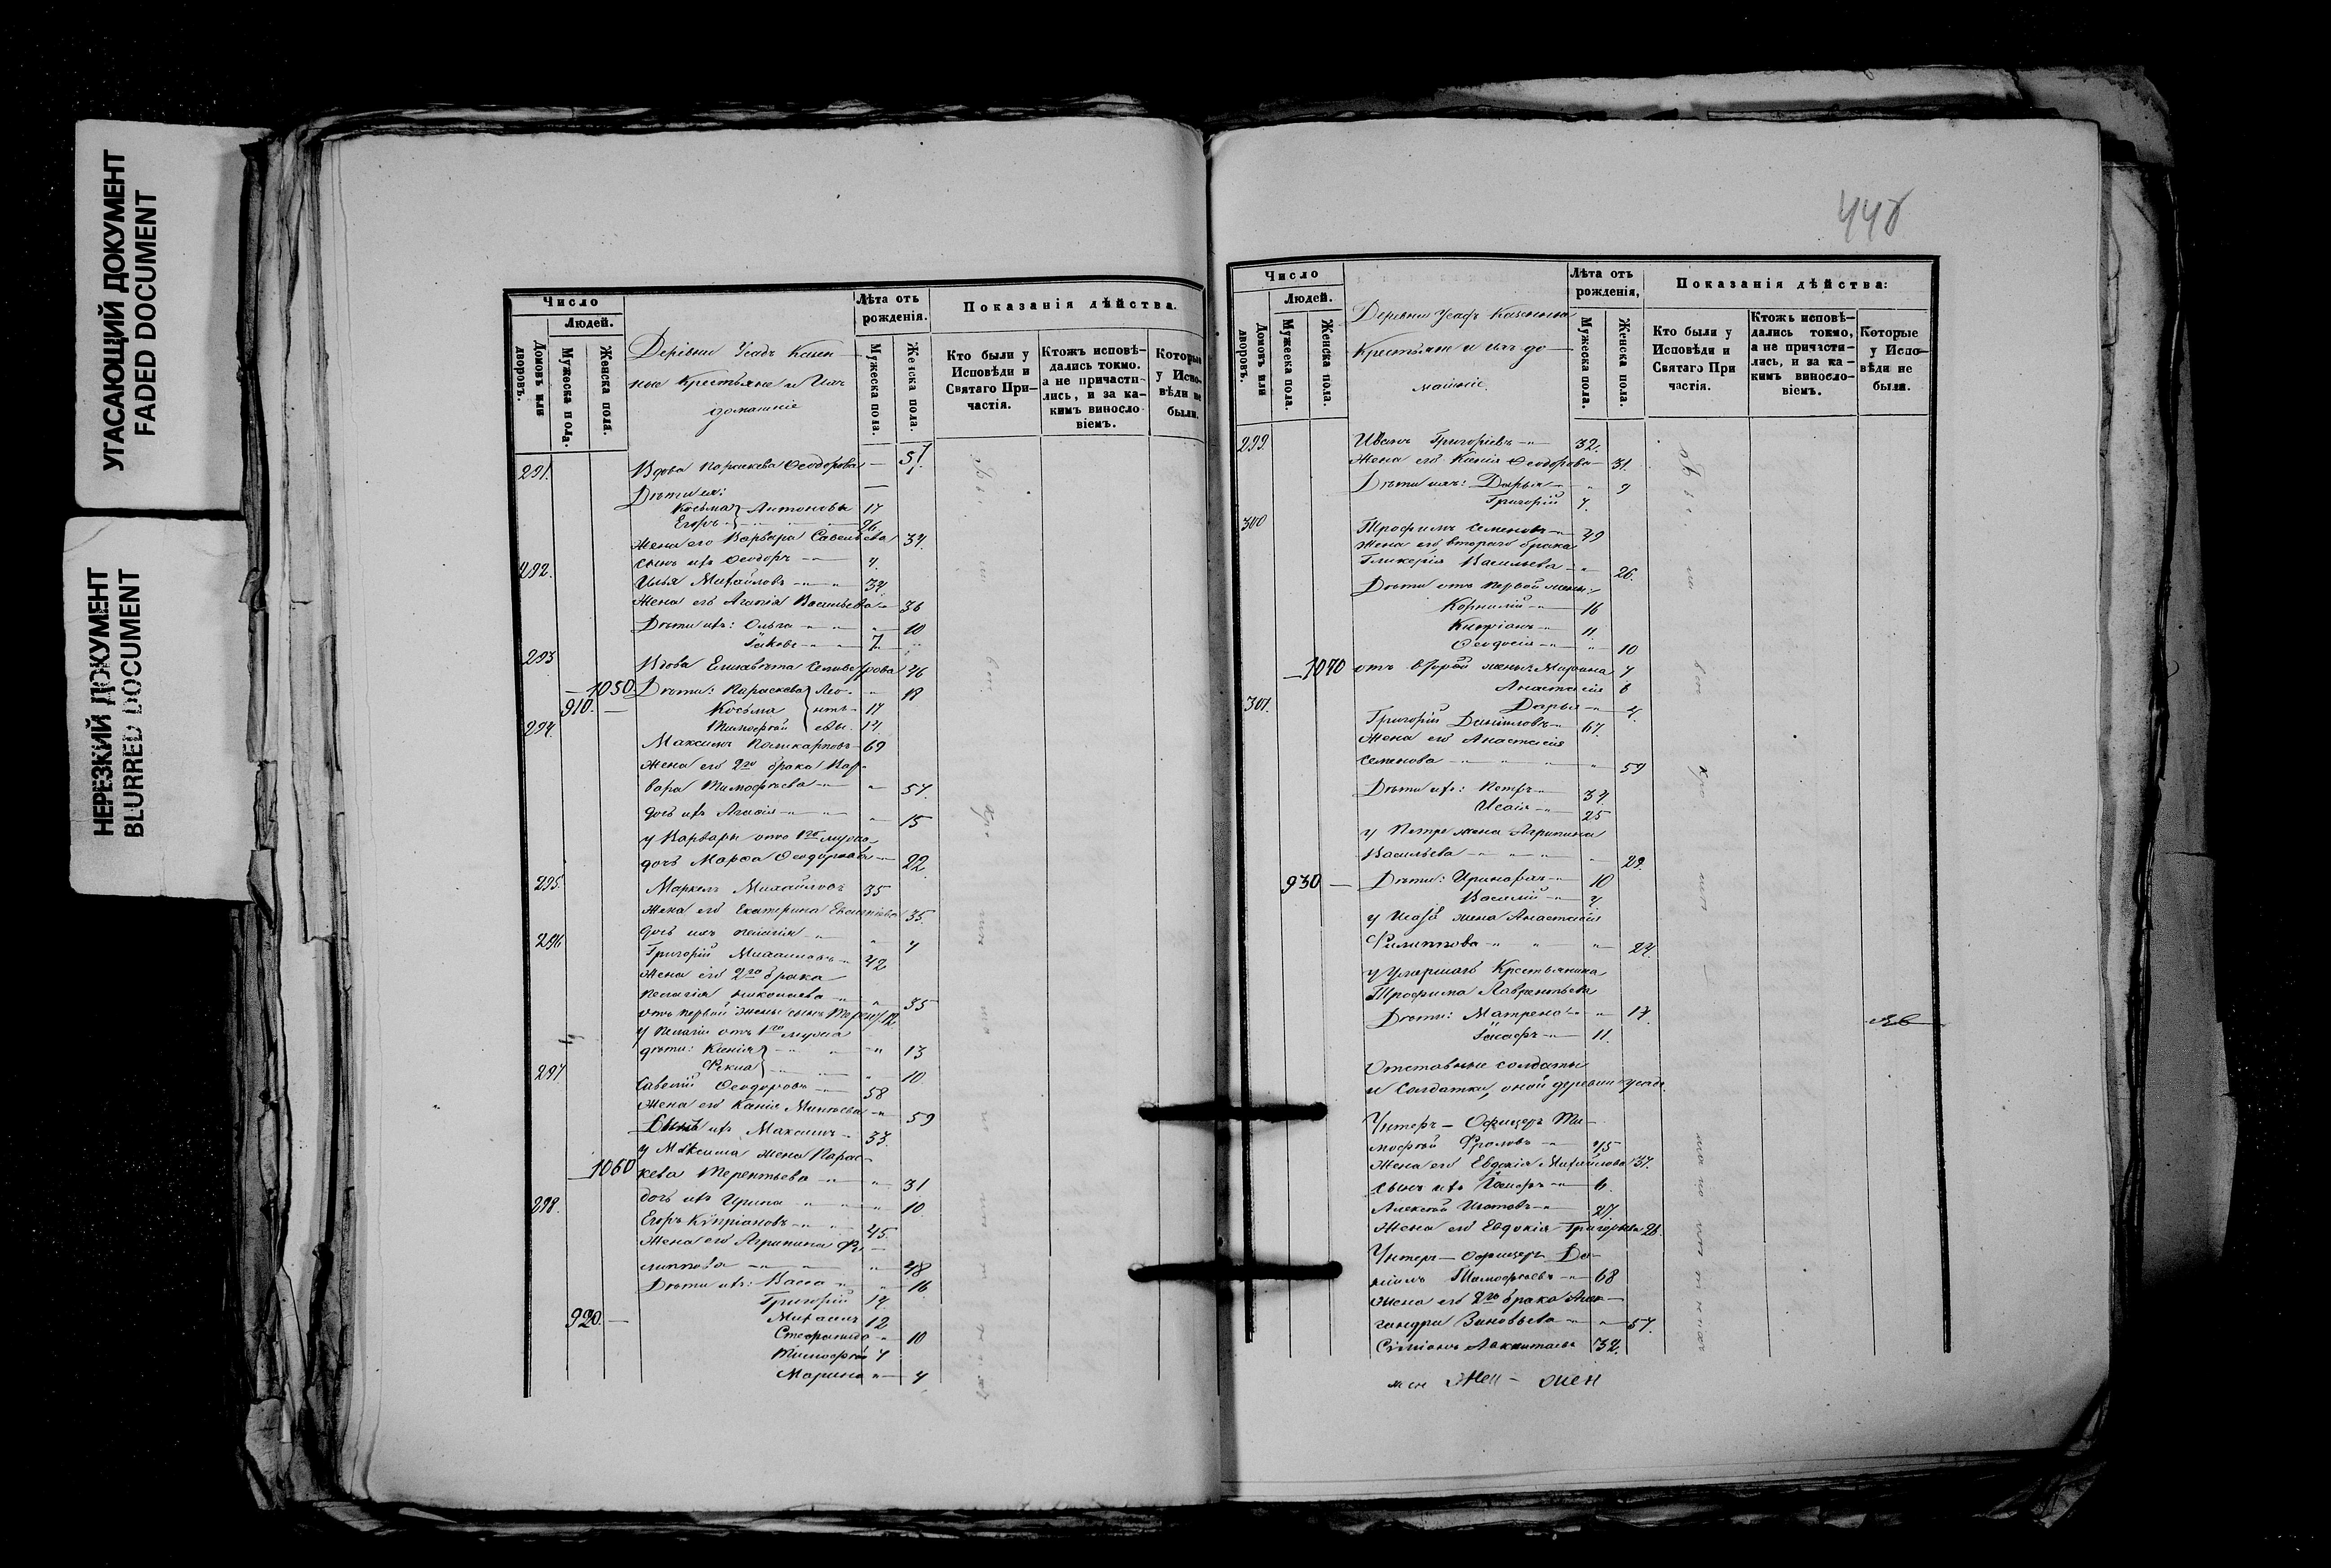 УГАСАЮЩИЙ ДОКУМЕНТ
FADED DOCUMENT
НЕРЕЗКИЙ ДОКУМЕНТ
BLURRED DOCUMENT
Число
Людей.
Домовъ или дворовъ.
Мужеска пола.
Женска пола.
Деревни Усадъ Казен-
ные Крестьяне и Ихъ
домашніе
Лѣта отъ рожденія.
Мужеска пола.
Женска пола.
Показанія дѣйства.
Кто были у Исповѣди и Святаго При-частія.
Ктожъ исповѣ-дались токмо. а не причасти-лись, и за ка-кимъ винословіемъ.
Которые у Испо-вѣди не были.
291. Вдова Параскева Ѳеодорова — 51
Дѣти ея:
Косьма Антоновы 17
Егоръ 26
Жена его Варвара Савельева 34
сынъ ихъ Ѳеодоръ 4
292. Илья Михайловъ 34
Жена его Агапія Васильева 36
Дѣти ихъ: Ольга 10
Іаковъ 7
293 Вдова Елисавета Селиверстрова 46
1050 Дѣти: Параскева Лео- 19
910. Косьма нть- 17
294. Тимоѳей евы. 14
Максимъ Поликарповъ 69
Жена его 2го брака Вар-
вара Тимоѳеева 57
дочь ихъ 15
у Варвары отъ 1го мужа
дочь Марѳа Ѳеодорова 22
295. Маркелъ Михайловъ 35
Жена его Екатерина 35
дочь ихъ Пелагія 4
296 Григорій Михайловъ 42
Жена его 2го брака
Пелагія Николаева 35
отъ первой жены сынъ
у Пелагіи отъ 1го мужа
дѣти: Ксенія 13
Ѳекла 10
297 Савелій Ѳеодоровъ 58
Жена его Ксенія 59
Сынъ ихъ Максимъ 33
у Максима жена Парас-
1060 кева Терентьева 31
дочь ихъ Ирина 10
298. Егоръ Кипріановъ 45
Жена его Агрипина Фи-
липпова 48
Дѣти ихъ: Васса 16
Григорій 14
920. Михаилъ 12
Стефанида 10
Тимоѳей 7
Марина 4
448
Число
Людей.
Домовъ или дворовъ.
Мужеска пола.
Женска пола.
Деревни Усадъ Казенные
Крестьяне и ихъ до-
машніе.
Лѣта отъ рожденія,
Мужеска пола.
Женска пола.
Показанія дѣйства:
Кто были у Исповѣди и Святаго При частія.
Ктожъ исповѣ-дались токмо, а не причастя-лись, и за ка-кимъ винословіемъ.
Которые у Испо-вѣди не были.
299. Иванъ Григорьевъ 32
Жена его Ксенія Ѳеодорова 31.
Дѣти ихъ: Дарья 9
Григорій 7.
300 Трофимъ Семеновъ 49
Жена его втораго брака
Гликерія Васильева 26.
Дѣти отъ первой жены:
Корнилій 16
Кипріанъ 11
Ѳеодосія 10
1070 отъ второй жены Марѳана 7
Анастасія 6
Дарья 4.
301. Григорій Даниловъ 67.
Жена его Анастасія
Семенова 59
Дѣти ихъ: Петръ 34
Исаія 25
у Петра жена Агрипина
Васильева 29.
930 Дѣти: 10
Василій 4
у Исаіи жена Анастасія
Филиппова 24.
у умершаго Крестьянина
Трофима Лаврентьева
Дѣти: Матрена 17.
Іосифъ 11.
Отставные солдаты
и Солдатки, оной деревни Усадъ.
Унтеръ-Офицеръ Ти-
моѳей Фроловъ 45
Жена его Евдокія Михайлова 37.
Сынъ ихъ 6.
Алексѣй 27.
Жена его Евдокія Григорьева 26.
Унтеръ-Офицеръ Да-
ніилъ Тимоѳеевъ 68
Жена его 2го брака Алек-
сандра Зиновьева 57.
32.